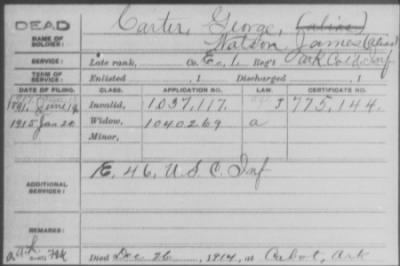 DEAD
Carter, George, (alias)
NAME OF SOLDIER:
Watson James (alias)
SERVICE: Late rank, Co. E, 1. Reg't Ark Cold. Inf
TERM OF SERVICE: Enlisted , 1 Discharged , 1
DATE OF FILING. CLASS. APPLICATION NO. LAW. CERTIFICATE NO.
1891, June 19 Invalid, 1037,117. J 775,144.
1915 Jan 20 Widow, 1040269 a
Minor,
ADDITIONAL SERVICES: E, 46, U.S.C. Inf
REMARKS:
Died Dec 26, 1914, at Cabot, Ark